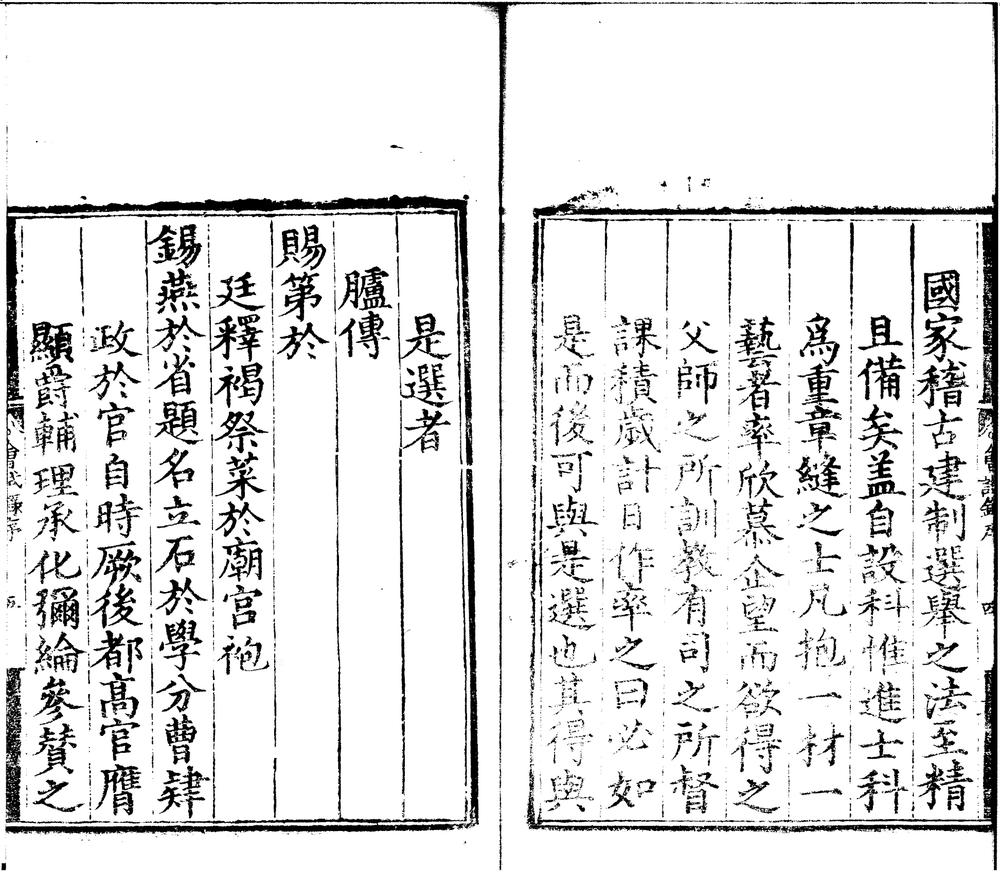 國家稽古建制選舉之法至精
且備矣盖自設科惟進士科
爲重章縫之士凡抱一材一
藝者率欣慕企望而欲得之
父師之所訓教有司之所督
課積歲計日作率之曰必如
是而後可與是選也其得與
是選者
臚傳
賜第於
廷釋褐祭菜於廟宫袍
錫燕於省題名立石於學分曹肄
政於官自時厥後都高官膺
顯爵輔理承化彌綸參賛之
會試錄序
五